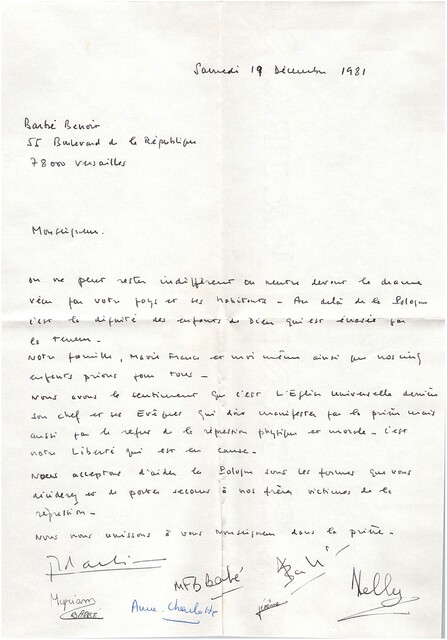 Samedi 19 Décembre 1981
Barbé Benoit
55 Boulevard de la République
78000 Versailles
Monseigneur.
On ne peut rester indifférent ou neutre devant le drame
vécu par votre pays et ses habitants - Au delà de la Pologne
c'est la dignité des enfants de Dieu qui est écrasée par
la terreur -
Notre famille, Marie France et moi même ainsi que nos cinq
enfants prions pour vous -
Nous avons le sentiment que c'est L'Eglise Universelle derrière
son chef et ses Evêques qui doit manifester par la prière mais
aussi par le refus de la répression physique et morale - c'est
votre Liberté qui est en cause -
Nous acceptons d'aider la Pologne sous les formes que vous
déciderez et de porter secours à nos frères victimes de la
répression -
Nous nous unissons à vous Monseigneur dans la prière -
MFB Barbé
Nelly
Myriam
BARBÉ
Anne-Charlotte
Jérôme